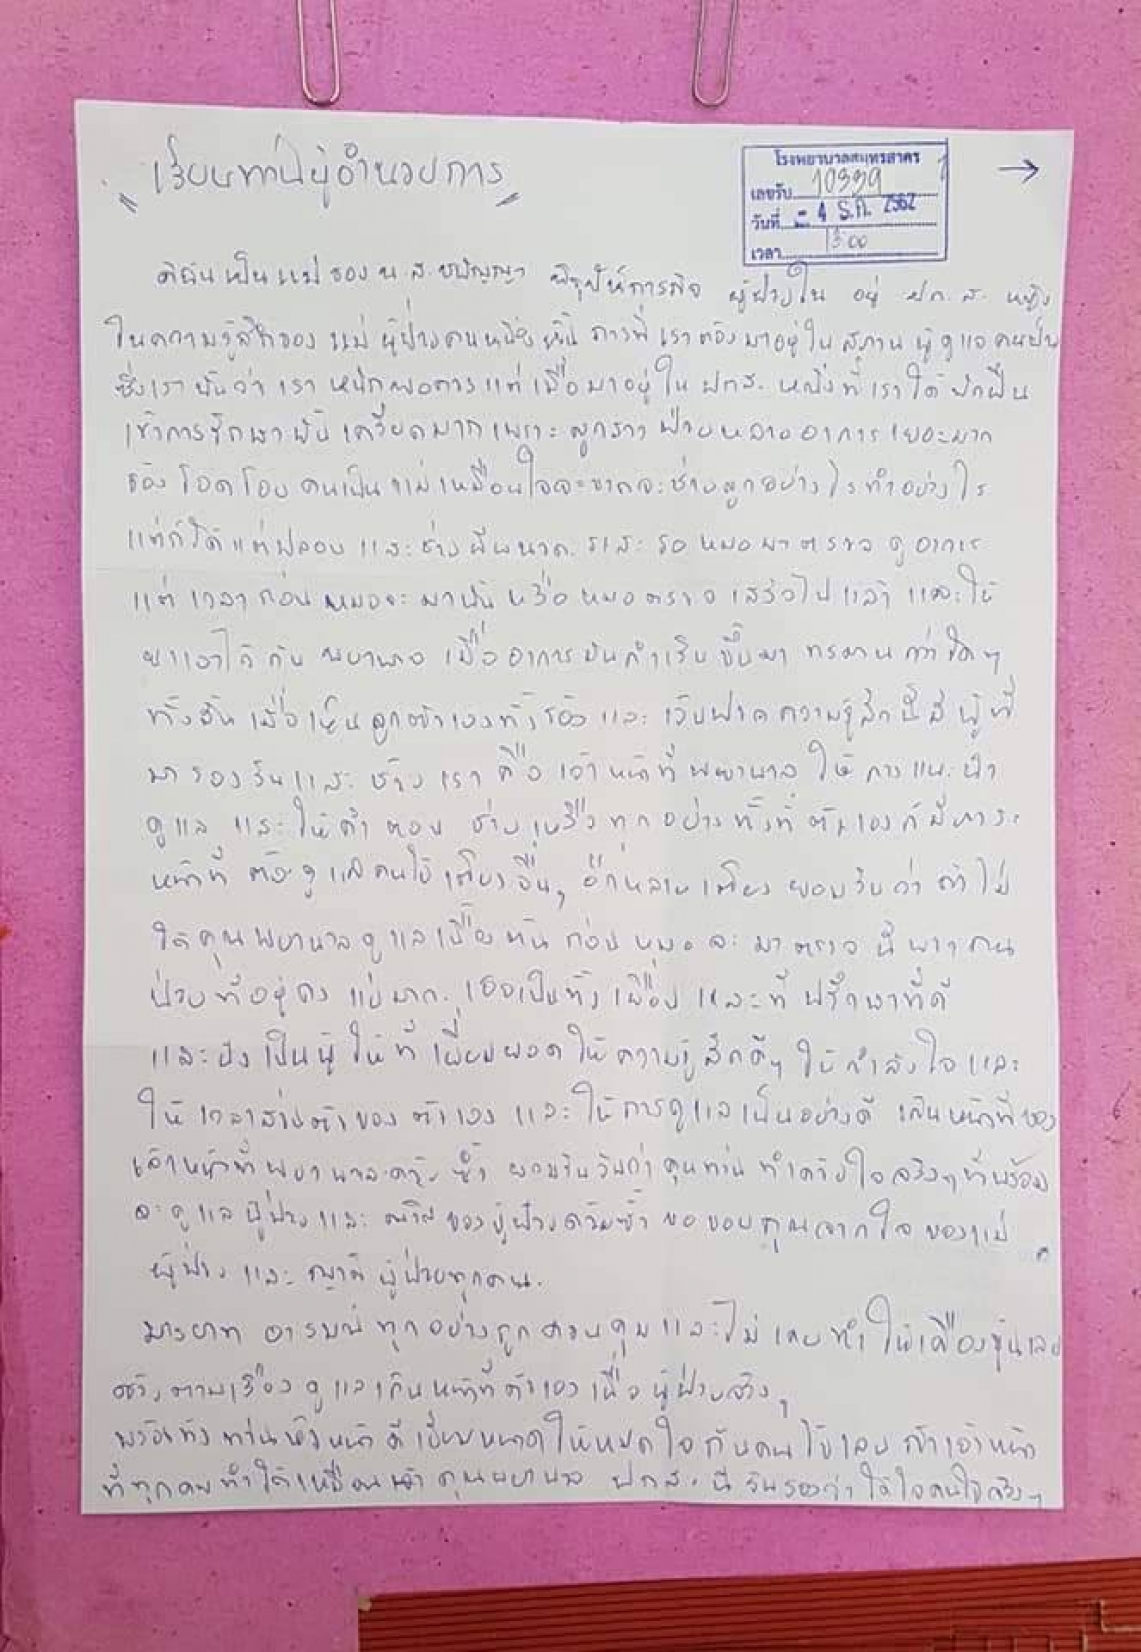 "เรียนท่านผู้อำนวยการ"
โรงพยาบาลสมุทรสาคร
เลขรับ 10339
วันที่ - 4 ธ.ค. 2562
เวลา 13:00
→
ดิฉันเป็นแม่ของ น.ส. ผู้ป่วยใน อยู่ หญิง
ในความรู้สึกของ แม่ ผู้ป่วยคนหนึ่งนั้น การที่เราต้องมาอยู่ใน สถานผู้ดูแลคนป่วย
ซึ่งเรา นั้นว่า เรา หนักพอควร แต่เมื่อมาอยู่ใน หญิงที่เราได้
เข้าการรักษา นั้นเครียดมากเพราะลูกสาว ป่วยหลายอาการเยอะมาก
ร้องโอดโอย คนเป็นแม่เหมือนใจจะขาดจะช่วยลูกอย่างไรทำอย่างไร
แต่ก็ได้แต่ปลอบ และ รอหมอมาตรวจดูอาการ
แต่เวลาก่อนหมอจะมานั้น หรือหมอตรวจเสร็จไปแล้ว และให้
ยาเอาไว้กับพยาบาล เมื่ออาการมันกำเริบขึ้นมา ทรมานกว่าใดๆ
ทั้งสิ้น เมื่อเห็นลูกตัวเองทั้งร้องและเจ็บปวด ความรู้สึกนี้มีผู้ที่
มารองรับและช่วยเรา คือ เจ้าหน้าที่พยาบาล ให้การแนะนำ
ดูแล และให้คำตอบ ช่วยเหลือทุกอย่างทั้งที่ตัวเองก็มีภาระ
หน้าที่ ต้องดูแลคนไข้เตียงอื่นๆ อีกหลายเตียง ยอมรับว่าถ้าไม่
ได้คุณพยาบาลดูแลเบื้องต้นก่อนหมอจะมาตรวจ นี้ คน
ป่วยที่อยู่คงแย่มาก. เธอเป็นทั้งเพื่อนและที่ปรึกษาที่ดี
และยังเป็นผู้ให้ที่เยี่ยมยอดให้ความรู้สึกดีๆ ให้กำลังใจและ
ให้เวลาส่วนตัวของตัวเอง และให้การดูแลเป็นอย่างดี เกินหน้าที่ของ
เจ้าหน้าที่พยาบาลด้วยซ้ำ ยอมรับว่าคุณท่านทำด้วยใจจริงๆ ที่พร้อม
จะดูแลผู้ป่วยและญาติของผู้ป่วยด้วยซ้ำ ขอขอบคุณจากใจของแม่
ผู้ป่วย และ ญาติ ผู้ป่วยทุกคน.
มารยาท อารมณ์ทุกอย่างถูกควบคุมและไม่เคยทำให้เคืองขุ่นเลย
ตามเรื่องดูแลเกินหน้าที่ตัวเองเพื่อผู้ป่วยจริงๆ
พร้อมทั้งท่านหัวหน้าดีเยี่ยม ให้หมดใจกับคนไข้เลย ถ้าเจ้าหน้า
ที่ทุกคนทำได้เหมือน คุณพยาบาล นี้ รับรองว่าได้ใจคนไข้จริงๆ